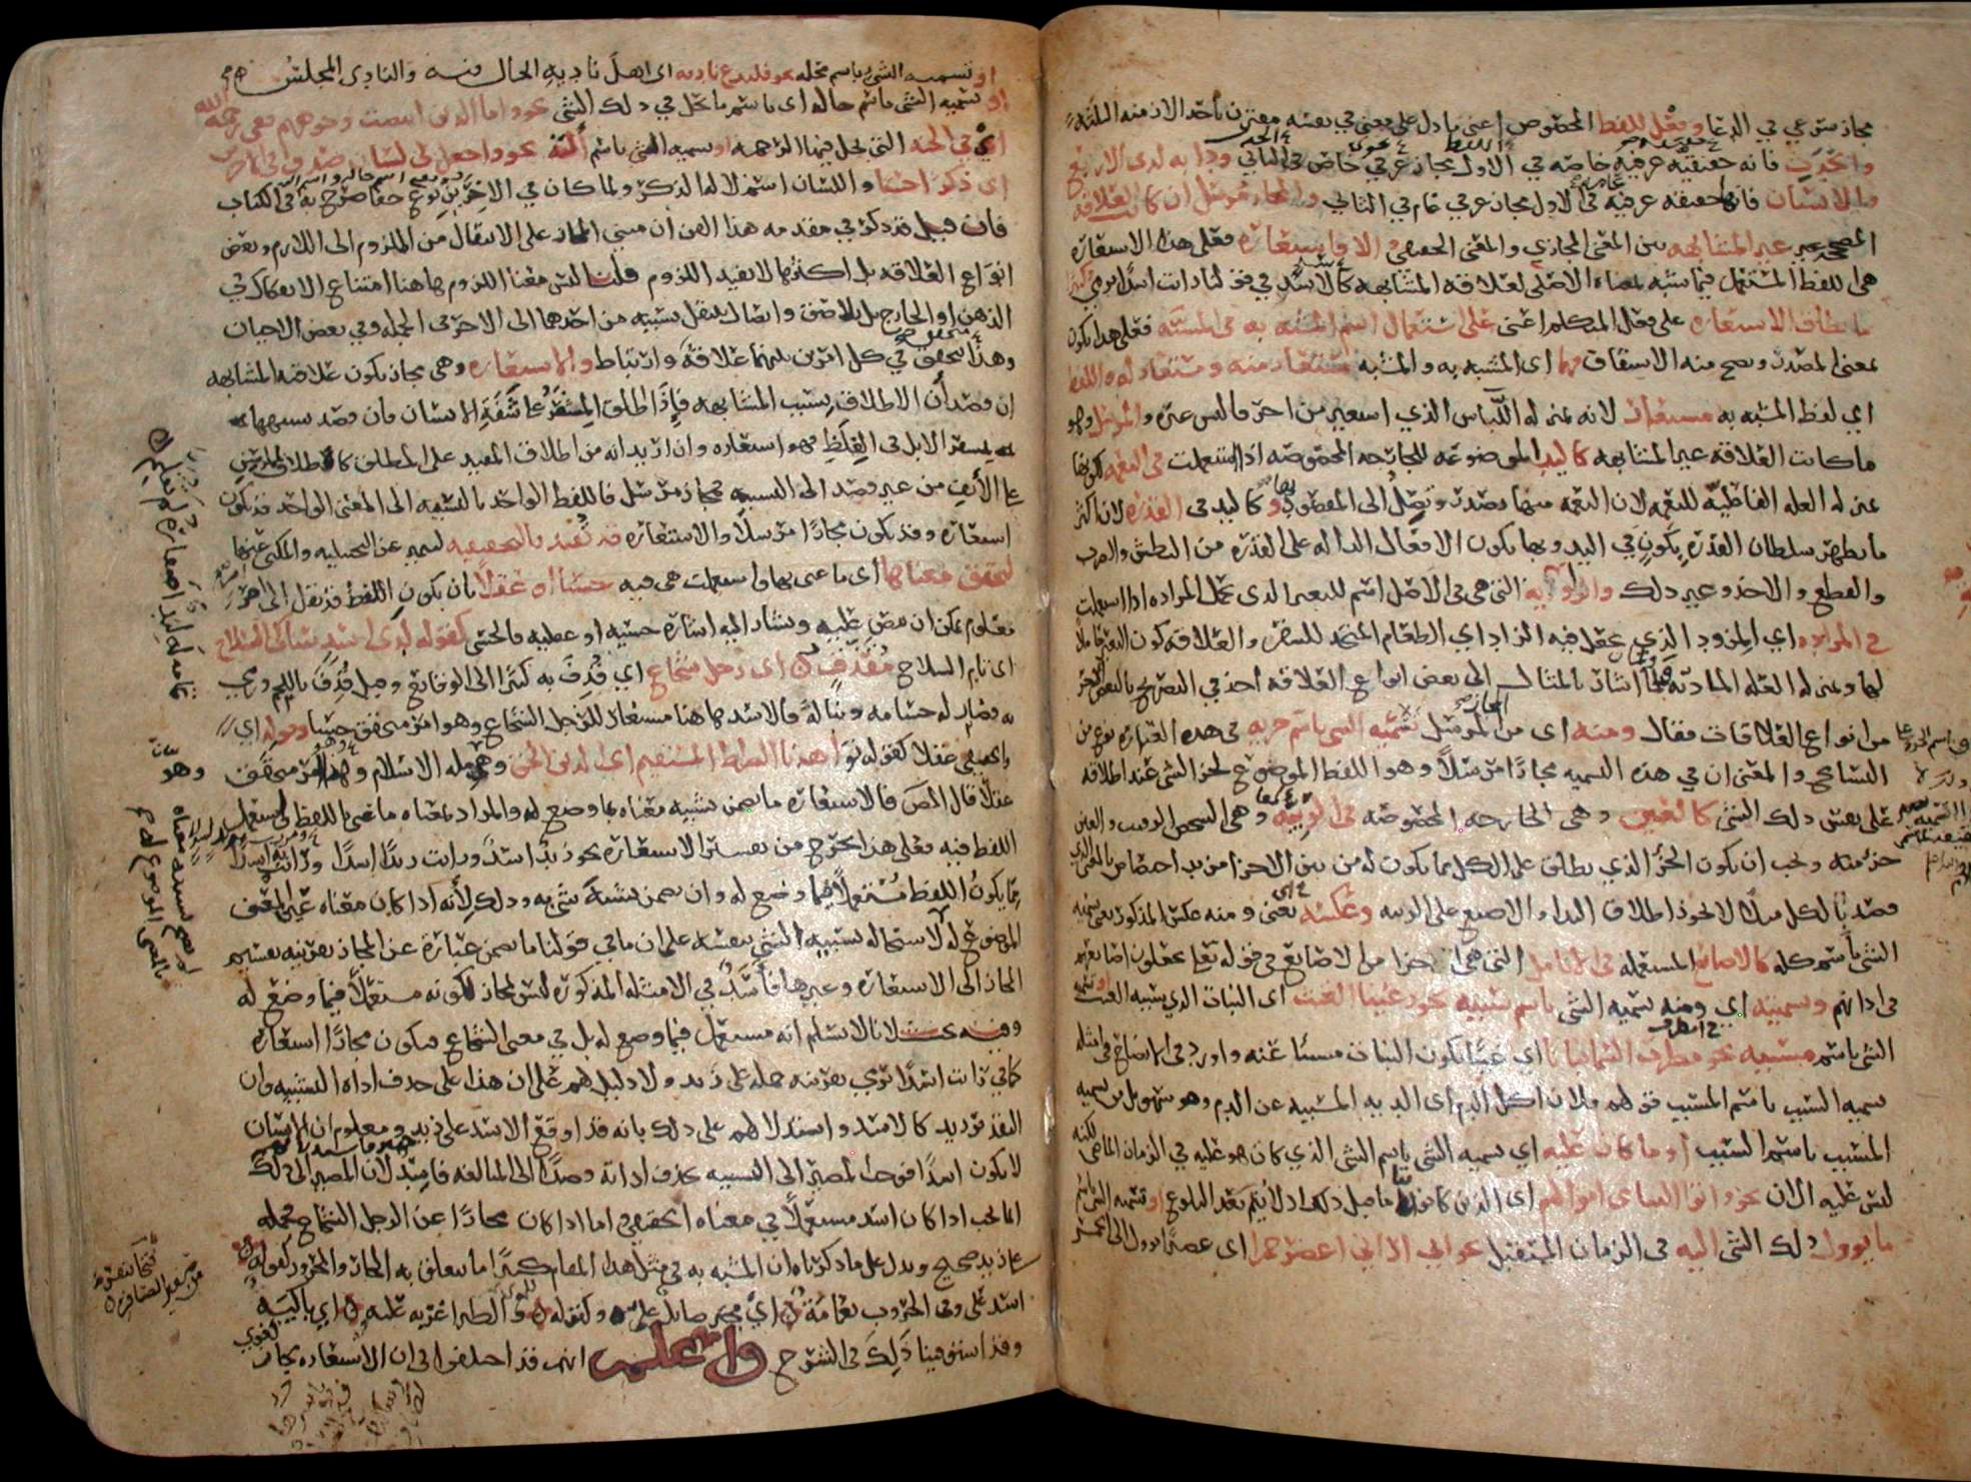 مجاز شرعي في الدعا وفعل للفظ المخصوص اعني ما دل على معنى في نفسه مقترن بأحد الازمنة الثلثة
والحدث فانه حقيقة عرفية خاصة في الاول مجاز عرفي خاص في الثاني ودابة لذي الاربع
والانسان فانها حقيقة عرفية في الاول مجاز عرفي عام في الثاني والمجاز مرسل ان كانت العلاقة
المصححة غير المشابهة بين المعنى المجازي والمعنى الحقيقي والا فاستعارة فعلى هذا الاستعارة
هي اللفظ المستعمل فيما شبه بمعناه الاصلي لعلاقة المشابهة كالاسد في قولنا رايت اسدا يرمي وكثيرا
ما يطلق الاستعارة على فعل المتكلم اعني على استعمال اسم المشبه به في المشبه فعلى هذا يكون
بمعنى المصدر ويصح منه الاشتقاق فهما اي المشبه به والمشبه مستعار منه ومستعار له واللفظ
اي لفظ المشبه به مستعار لانه بمنزلة اللباس الذي استعير من احد فالبس غيره والمرسل وهو
ما كانت العلاقة غير المشابهة كاليد الموضوعة للجارحة المخصوصة اذا استعملت في النعمة لكونها
بمنزلة العلة الفاعلية للنعمة لان النعمة منها تصدر وتصل الى المقصود بها وكاليد في القدرة لان اكثر
ما يظهر سلطان القدرة يكون في اليد وبها يكون الافعال الدالة على القدرة من البطش والضرب
والقطع والاخذ وغير ذلك والراوية التي هي في الاصل اسم للبعير الذي يحمل المزادة اذا استعملت
في المزادة اي المزود الذي يجعل فيه الزاد اي الطعام المتخذ للسفر والعلاقة كون البعير حاملا
لها وبمنزلة العلة المادية فلما اشار بالمثال الى بعض انواع العلاقة اخذ في التصريح بالبعض الاخر
من انواع العلاقات فقال ومنه اى من المرسل تسمية الشى باسم جزيه في هذه العبارة نوع من
التسامح والمعنى ان في هذه التسمية مجازا مرسلا وهو اللفظ الموضوع لجزء الشى عند اطلاقه
على نفس ذلك الشى كالعين وهى الجارحة المخصوصة في الربيئة وهي الشخص الرقيب والعين
جزء منه ويجب ان يكون الجزء الذي يطلق على الكل مما يكون له من بين الاجزا مزيد اختصاص بالمعنى الذي
قصد بالكل مثلا لا يجوز اطلاق اليد او الاصبع على الربيئة وعكسه يعني ومنه عكس المذكور يعنى تسمية
الشى باسم كله كالاصابع المستعملة في الانامل التي هي اجزا من الاصابع في قوله تعلى يجعلون اصابعهم
في اذانهم وتسميته اي ومنه تسمية الشى باسم سببه نحو رعينا الغيث اى النبات الذي سببه الغيث او تسمية
الشى باسم مسببه نحو امطرت السما نباتا اي غيثا يكون النبات مسببا عنه واورد في الايضاح في امثلة
تسمية السبب باسم المسبب قولهم فلان اكل الدم اى الدية المسببة عن الدم وهو سهو بل من تسمية
المسبب باسم السبب او ما كان عليه اي تسمية الشى باسم الشى الذي كان هو عليه في الزمان الماضي لكنه
ليس عليه الان نحو واتوا اليتامى اموالهم اى الذين كانوا يتامى قبل ذلك اذ لا يتم بعد البلوغ او تسمية الشى باسم
ما يوول ذلك الشى اليه في الزمان المستقبل نحو اني اراني اعصر خمرا اى عصيرا يوول الى الخمر
او تسمية الشى باسم محله نحو فليدع ناديه اى اهل ناديه الحال فيه والنادي المجلس
او تسمية الشى باسم حاله اى باسم ما يحل في ذلك الشى نحو واما الذين ابيضت وجوههم ففي رحمة الله
اي في الجنة التي تحل فيها الرحمة او تسمية الشى باسم آلته نحو واجعل لي لسان صدق في الاخرين
اى ذكرا حسنا واللسان اسم لالة الذكر ولما كان في الاخيرين نوع خفا صرح به في الكتاب
فان قيل قد ذكر في مقدمة هذا الفن ان مبنى المجاز على الانتقال من الملزوم الى اللازم وبعض
انواع العلاقة بل اكثرها لا يفيد اللزوم قلنا ليس معنى اللزوم هاهنا امتناع الانفكاك في
الذهن او الخارج بل تلاصق واتصال ينتقل بسببه من احدهما الى الاخر في الجملة وفي بعض الاحيان
وهذا متحقق في كل امرين بينهما علاقة وارتباط والاستعارة وهي مجاز يكون علاقته المشابهة
ان قصد ان الاطلاق بسبب المشابهة فاذا اطلق المشفر على شفة الانسان فان قصد تشبيهها
بمشفر الابل في الغلظ فهو استعارة وان اريد انه من اطلاق المقيد على المطلق كاطلاق المرسن
على الأنف من غير قصد الى التشبيه فمجاز مرسل فاللفظ الواحد بالنسبة الى المعنى الواحد قد يكون
استعارة وقد يكون مجازا مرسلا والاستعارة قد تقيد بالتحقيقية لتميز عن التخييلية والمكني عنها
لتحقق معناها اى ما عنى بها واستعملت هي فيه حسا او عقلا بان يكون اللفظ قد نقل الى امر
معلوم يمكن ان ينص عليه ويشار اليه اشارة حسية او عقلية فالحسي كقوله لدى اسد شاكي السلاح
اى تام السلاح مقذف اى رجل شجاع اي قذف به كثيرا الى الوقايع وقيل قذف باللحم ورمي
به فصار له جسامة ونبالة فالاسد هاهنا مستعار للرجل الشجاع وهو امر متحقق حسا وقوله اي
والتحقيقي عقلا كقوله تع اهدنا الصراط المستقيم اى الدين الحق وهو ملة الاسلام وهذا امر متحقق
عقلا قال المص فالاستعارة ما تضمن تشبيه معناه بما وضع له والمراد بمعناه ما عني باللفظ واستعمل
اللفظ فيه فعلى هذا يخرج من تفسير الاستعارة نحو زيد اسد ورايت زيدا اسدا ورايت به اسدا
مما يكون اللفظ مستعملا فيما وضع له وان تضمن تشبيه شى به وذلك لأنه اذا كان معناه عين المعنى
الموضوع له لاستحاله تشبيه الشى بنفسه على ان ما في قولنا ما تضمن عبارة عن المجاز بقرينة تقسيم
المجاز الى الاستعارة وغيرها فأسد في الامثلة المذكورة ليس بمجاز لكونه مستعملا فيما وضع له
وفيه بحث لانا لا نسلم انه مستعمل فيما وضع له بل في معنى الشجاع فيكون مجازا استعارة
كما في رايت اسدا يرمي بقرينة حمله على زيد ولا دليل لهم على ان هذا على حذف اداة التشبيه وان
التقدير زيد كالاسد واستدلالهم على ذلك بانه قد اوقع الاسد على زيد ومعلوم ان الانسان
لا يكون اسدا فوجب المصير الى التشبيه بحذف اداته قصدا الى المبالغة فاسد لان المصير الى ذلك
انما يجب اذا كان اسد مستعملا في معناه الحقيقي اما اذا كان مجازا عن الرجل الشجاع فحمله
على زيد صحيح ويدل على ما ذكرناه ان المشبه به في مثل هذا المقام كثيرا ما يتعلق به الجار والمجرور كقوله
اسد علي وفي الحروب نعامة اي مجترئ صايل علي وكقوله والطير اغربة عليه اي باكية
وقد استوفينا ذلك في الشرح واعلم انهم قد اختلفوا في ان الاستعارة مجاز لغوي